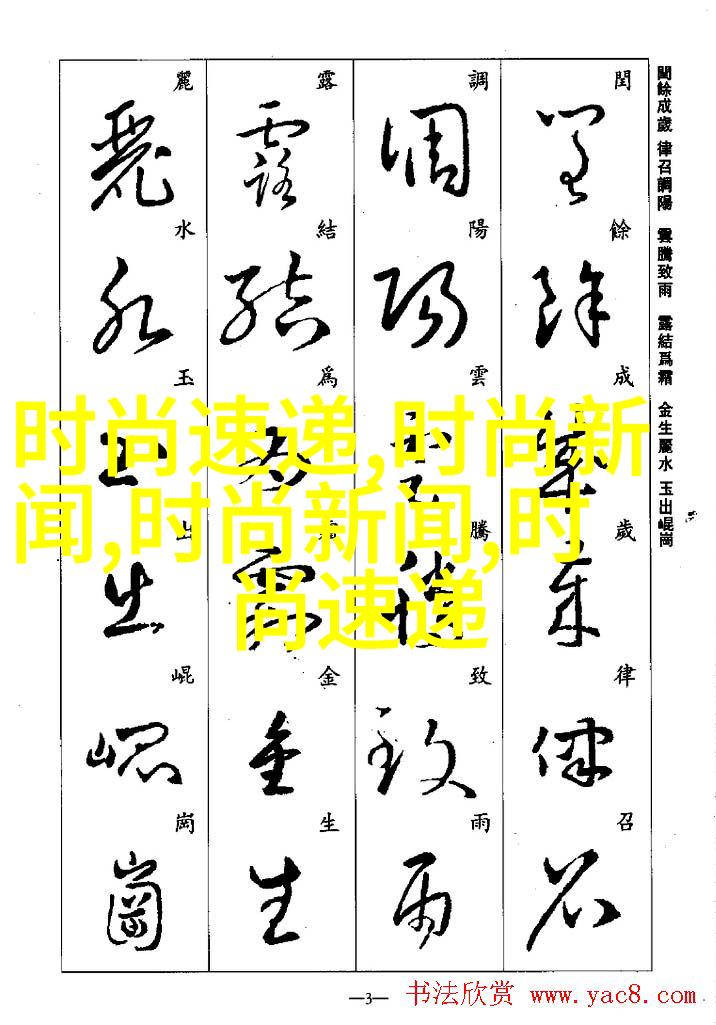 閏餘成歲 律召調陽 雲騰致雨 露結爲霜 金生麗水 玉出崐崗
閏餘成歲律召
調陽雲騰致雨
露結爲霜金生
麗水玉出崐崗
时尚速递,时尚新
闻,时尚新闻,时
尚速递
—3—
书法欣赏 www.yac8.com